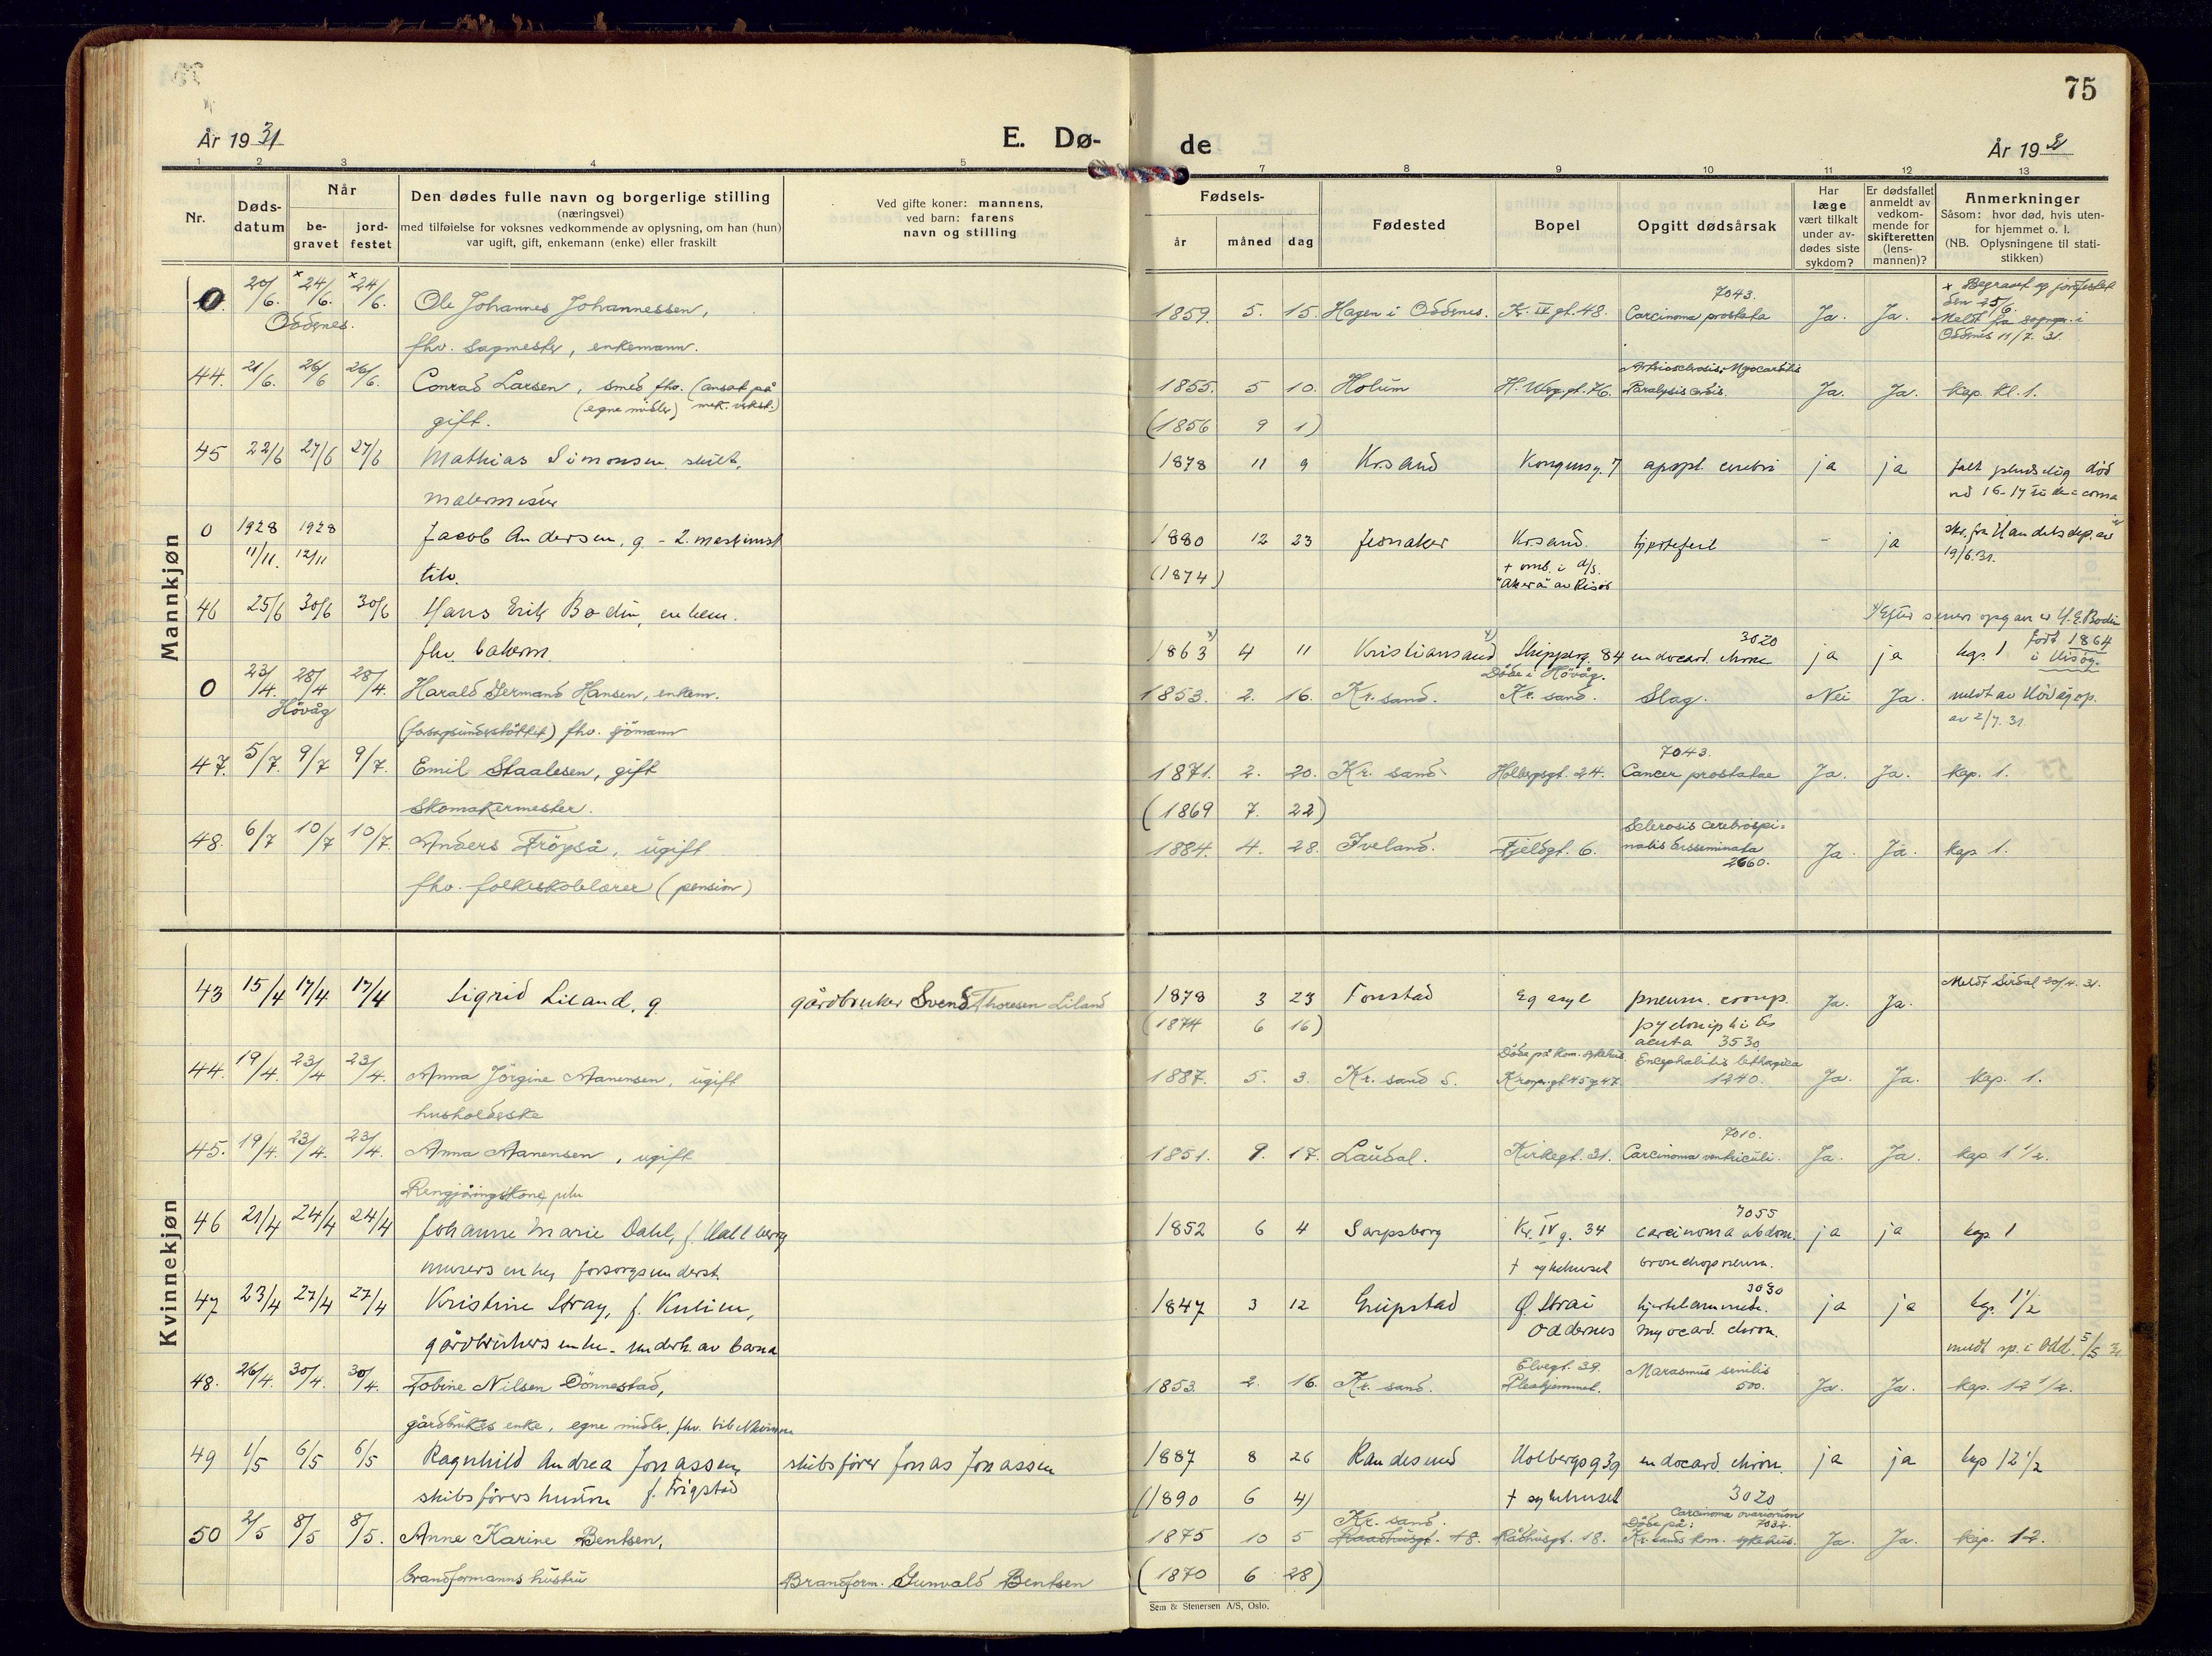 75
År 1931
E. Dø-
de
År 1931
1 2 3 4 5 7 8 9 10 11 12 13
Nr.
Døds-
datum
Når
be-
gravet
jord-
festet
Den dødes fulle navn og borgerlige stilling
(næringsvei)
med tilføielse for voksnes vedkommende av oplysning, om han (hun)
var ugift, gift, enkemann (enke) eller fraskilt
Ved gifte koner: mannens,
ved barn: farens
navn og stilling
Fødsels-
år måned dag
Fødested
Bopel
Opgitt dødsårsak
Har
læge
vært tilkalt
under av-
dødes siste
sykdom?
Er dødsfallet
anmeldt av
vedkom-
mende for
skifteretten
(lens-
mannen)?
Anmerkninger
Såsom: hvor død, hvis uten-
for hjemmet o. l.
(NB. Oplysningene til stati-
stikken)
Mannkjøn
0 20/6. x 24/6. x 24/6. Ole Johannes Johannessen, 1859. 5. 15. Hagen i Oddernes. Kr. IV gt. 48. 7043. Carcinoma prostata Ja. Ja. x Begravet og jordfestet
Oddernes. den 25/6.
fhv. sagmester, enkemann. Meldt fra sogepr. i
Oddernes 11/7. 31.
44. 21/6. 26/6 26/6. Conrad Larsen, smed fhv. (ansat på mek. verkst.) 1855. 5 10. Holum H. Werg. gt. 76. Arteriosclerosis. Myocarditis Paralysis cordis. Ja. Ja. kap. kl. 1.
gift. (egne midler) (1856 9 1)
45 22/6 27/6 27/6 Mathias Simonsen, skilt, 1878 11 9 Krsand Kongensg. 7 apopl. cerebri ja ja falt pludselig død
malermester
0 1928 11/11. 1928 12/11 Jacob Andersen, g. - 2. maskinist 1880 12 23 Krsand. hjertefeil - ja skr. fra Handelsdep. av
(1874) + omb. i d/s. "Akera" av Risør 19/6.31.
46 25/6 30/6 30/6 Hans Erik Bodin, enkem. x) Efter senere opg av er H. E. Bodin
fhv. bakerm. 1863 x) 4 11 Kristiansand x) Skipperg. 84 3020 endocard. chron ja ja kap. 1 født 1864
0 23/4. 28/4 28/4. Harald Germand Hansen, enkem. 1853. 2. 16. Kr. sand. Døde i Høvåg. Kr. sand. Slag. Nei Ja. meldt av Høvåg sp.
Høvåg av 2/7. 31.
(forsorgsunderstøttet) fhv. sjømann
47. 5/7. 9/7 9/7. Emil Staalesen, gift 1871. 2. 20. Kr. sand Holbergsgt. 24. 7043. Cancer prostatae Ja. Ja. kap. 1.
Skomakermester. (1869 7. 22)
48. 6/7 10/7 10/7. Anders Frøyså, ugift 1884. 4. 28. Iveland. Fjeldgt. 6. Sclerosis cerebrospi-
nalis disseminata 2660. Ja. Ja. kap 1.
fhv. folkeskolelærer (pension)
Kvinnekjøn
43 15/4 17/4 17/4 Sigrid Liland, g. gårdbruker Svend Thoresen Liland 1878 3 23 Tonstad Eg asyl pneum. croup. Ja. Ja. Meldt Sirdal 20/4. 31.
(1874 6 16) acuta 3530
44. 19/4. 23/4 23/4. Anna Jørgine Aanensen, ugift 1887. 5. 3. Kr. sand S. Døde på kom. sykehus. Encephalitis lethargica 1240. Ja. Ja. kap. 1.
husholderske
45. 19/4. 23/4. 23/4. Anna Aanensen, ugift 1851. 9. 17. Laudal. Kirkegt. 31. 7010. Carcinoma ventriculi. Ja. Ja. kap 1 1/2.
Rengjøringskone
46 21/4 24/4 24/4 Johanne Marie Dahl, f. Hallberg 1852 6 4 Sarpsborg Kr. IV g. 34 7055 carcinoma abdom. ja ja kap 1
murers enke, forsorgsunderst. † sykehuset bronchopneum.
47 23/4 27/4 27/4 Kristine Stray, f. Kulien, 1847 3 12 Greipstad Ø. Strai 3030 hjertelammelse. ja ja kp. 1 1/2
gårdbrukers enke. underh. av barna Oddernes myocard. chron. meldt sp. i Odd. 5/5 31
48. 26/4. 30/4. 30/4. Tobine Nilsen Dønnestad, 1853. 2. 16. Kr. sand. Elvegt. 39. Pleiehjemmet. Marasmus senilis 500. Ja. Ja. kap. 12 1/2.
gårdbrukers enke, egne midler,
49 1/5 6/5 6/5 Ragnhild Andrea Jonassen, skibsfører Jonas Jonassen 1887 8 26 Randesund Holbergsg 39 endocard. chron. ja ja kap 12 1/2
skibsførers hustru f. Trigstad (1890 6 4) † sykehuset 3020
50 2/5 8/5 8/5. Anne Karine Bentsen, 1875 10 5 Kr. sand. Raadhusgt. 18. Rådhusgt. 18. Carcinoma ovariorum Døde på: Kr.sands kom. sykehus. Ja. Ja. kap. 12.
brandformanns hustru Brandform. Gunvald Bentsen (1870 6 28)
Sem & Stenersen A/S, Oslo.